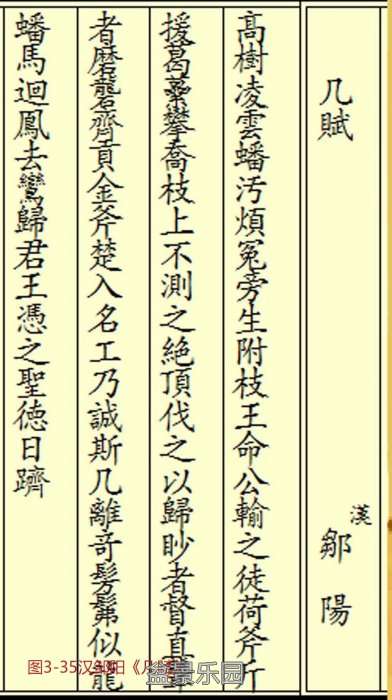 几賦
漢 鄒陽
髙樹凌雲蟠汚煩冤旁生附枝王命公輸之徒荷斧斤
援葛虆攀喬枝上不測之絶頂伐之以歸眇者督直聾
者磨礱齊貢金斧楚入名工乃誠斯几離奇髣髴似龍
蟠馬迴鳳去鸞歸君王憑之聖徳日躋
图3-35汉邹阳《几
盆景乐园